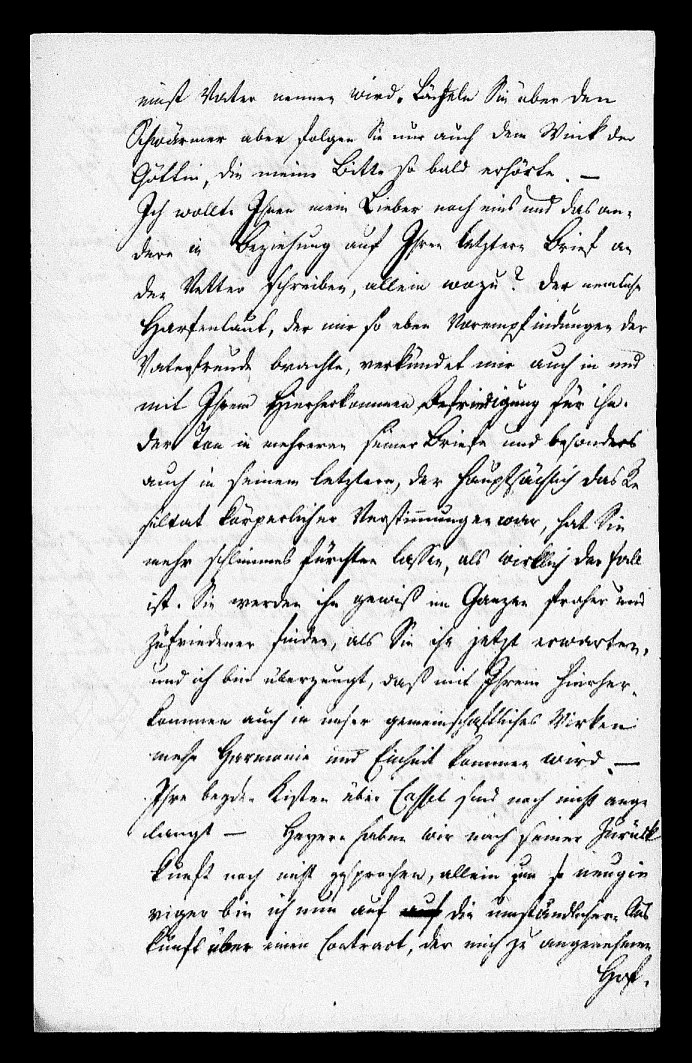 einst Vater nennen wird. Lächeln Sie über den
Schwärmer aber folgen Sie nur auch dem Wink der
Göttin, die meine Bitte so bald erhörte. —
Ich wollte Ihnen mein Lieber noch eins und das an-
dere in Beziehung auf Ihren letztern Brief an
den Vetter schreiben, allein wozu? Der nemliche
Harfenlaut, der mir so eben Vorempfindungen der
Vaterfreude brachte, verkündet mir auch in und
mit Ihrem Hierherkommen Befriedigung für ihn.
Der Ton in mehreren seiner Briefe und besonders
auch in seinem letztern, der hauptsächlich das Re
sultat körperlicher Verstimmungen war, hat Sie
mehr schlimmes fürchten lassen, als wirklich der Fall
ist. Sie werden ihn gewiß im Ganzen froher und
zufriedener finden, als Sie ihn jetzt erwarten,
und ich bin überzeugt, daß mit Ihrem Hierher-
kommen auch in unser gemeinschaftliches Wirken
mehr Harmonie und Einheit kommen wird. —
Ihre beyden Kisten über Cassel sind noch nicht ange
langt — Heyern haben wir nach seiner Zurück
kunft noch nicht gesprochen, allein um so neugie
riger bin ich nun auf auf die umständlichere Aus
kunft über einen Contract, der mich zu angenehmen
Hof-